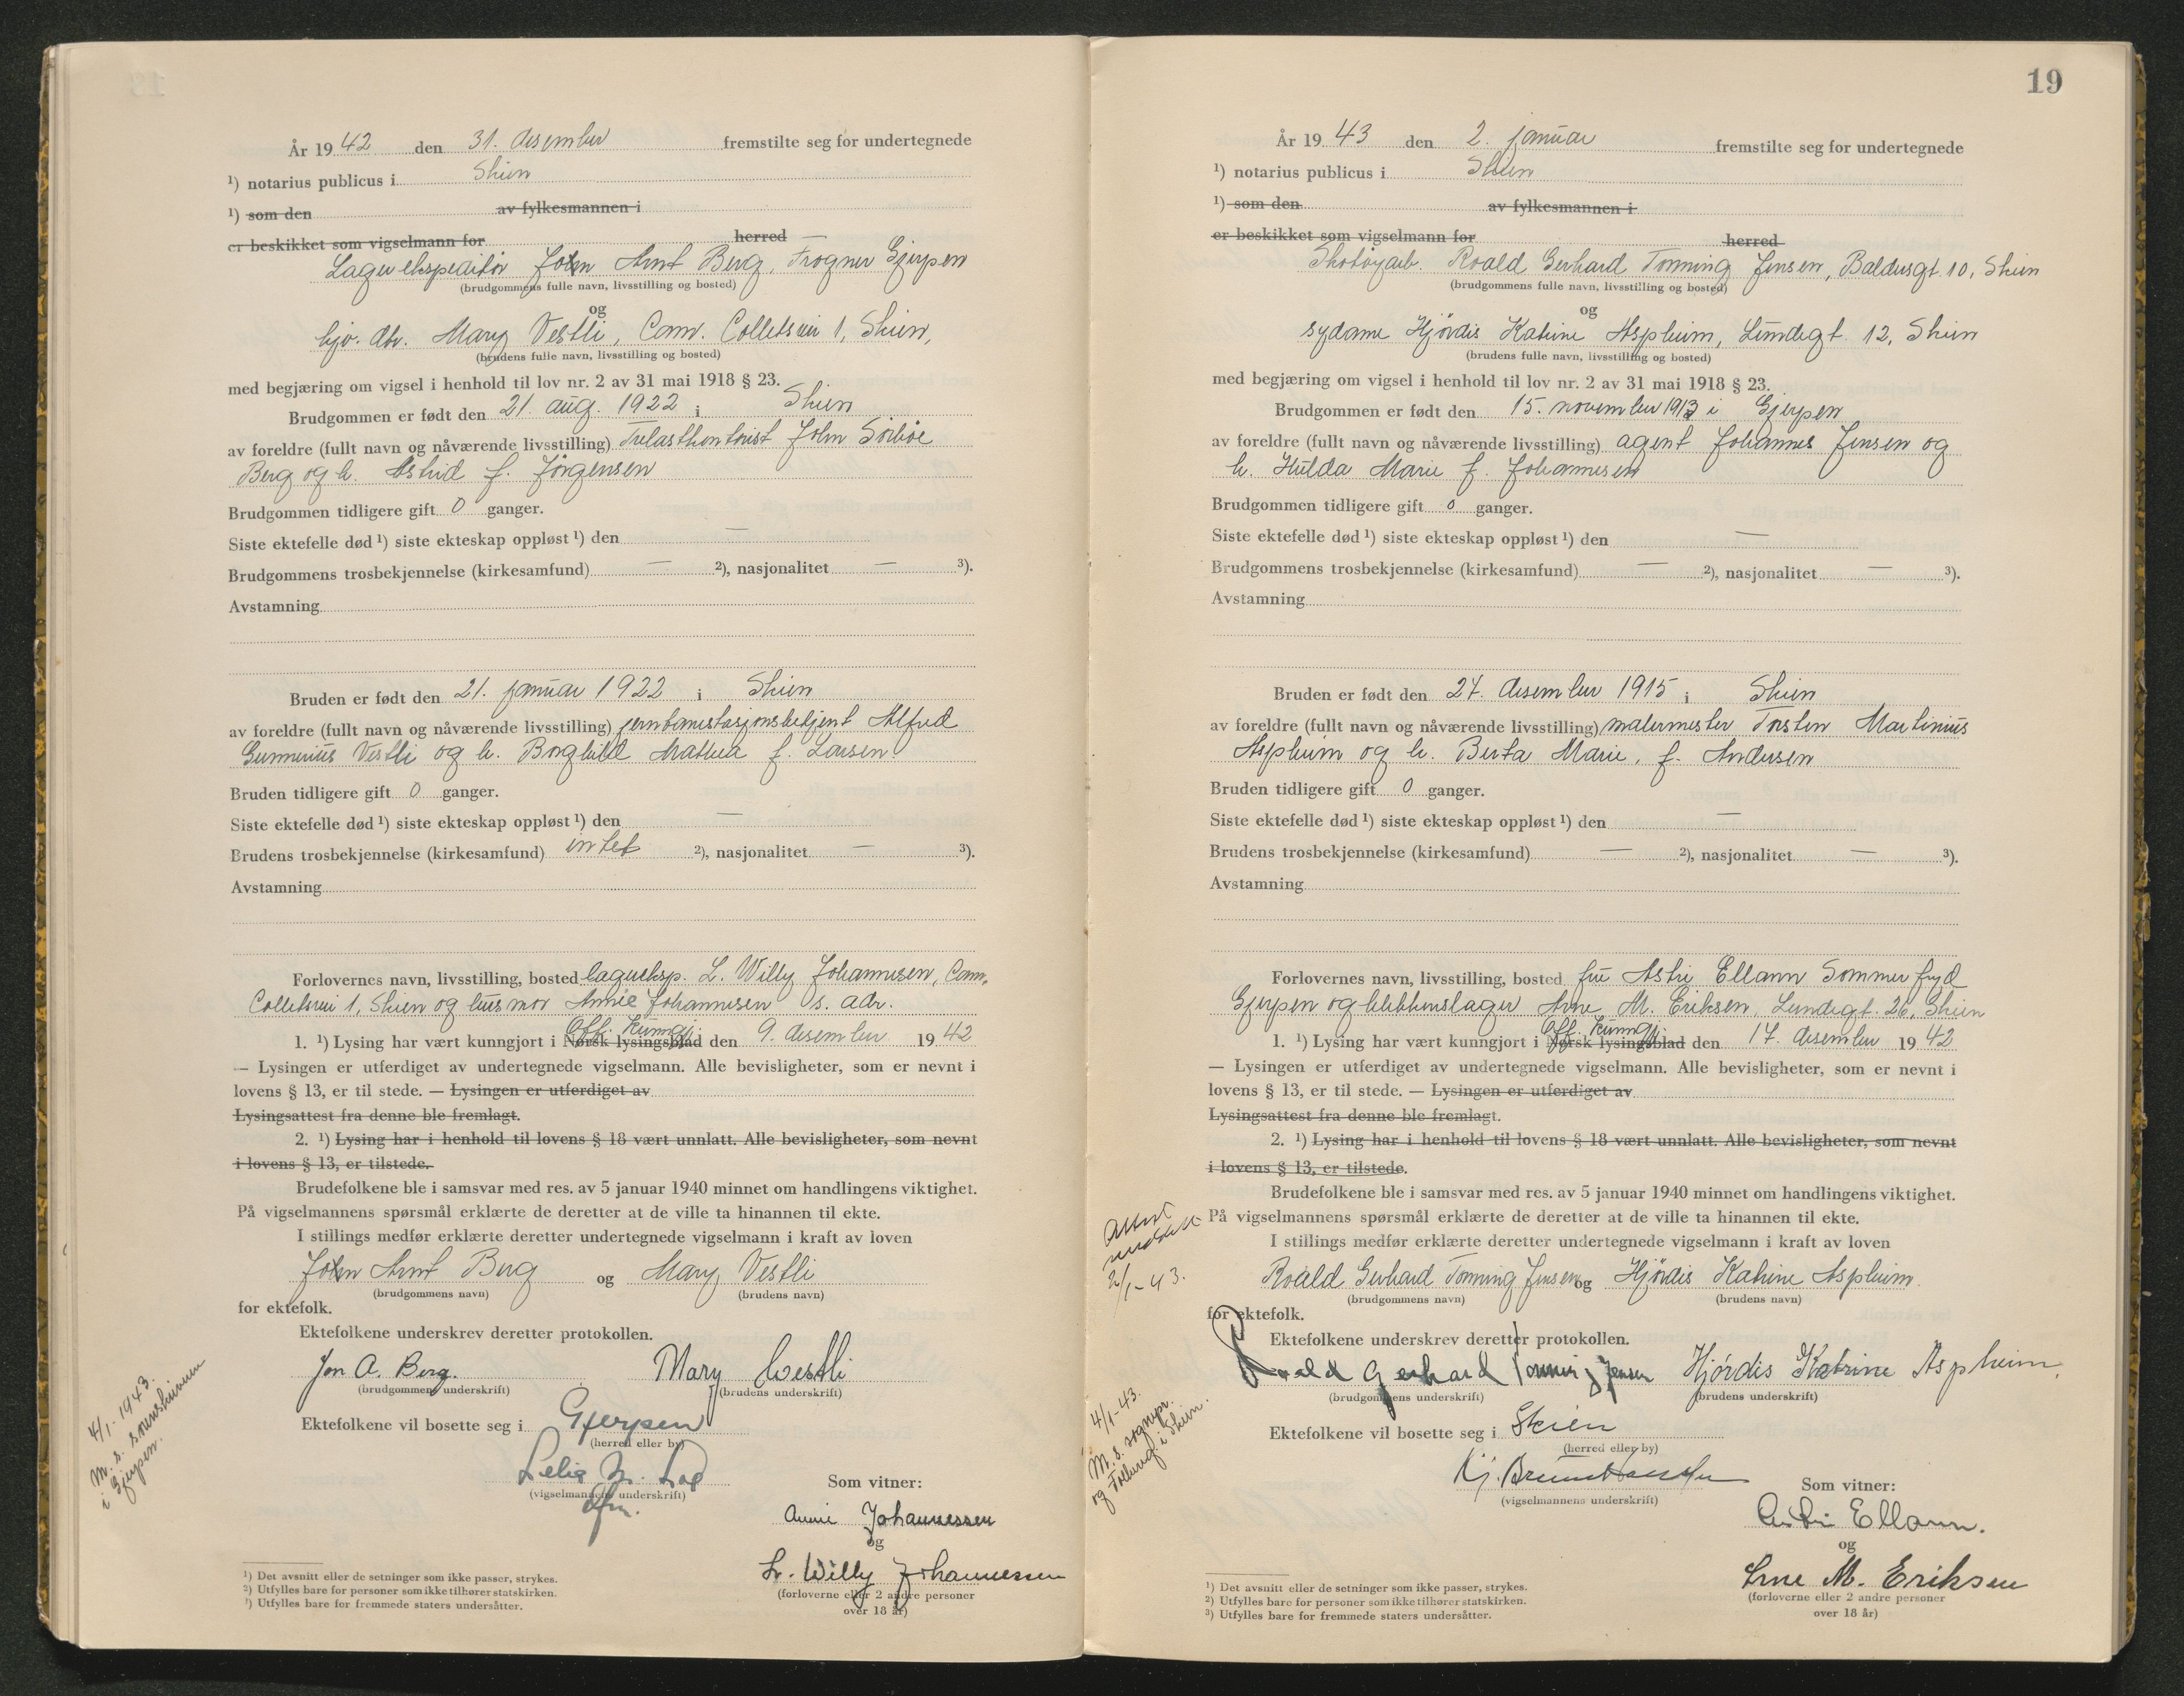 År 1942 den 31. desember fremstilte seg for undertegnede
¹) notarius publicus i Skien
¹) som den av fylkesmannen i
er beskikket som vigselmann for herred —
Lagerekspeditør John Arnt Berg, Frogner Gjerpen
(brudgommens fulle navn, livsstilling og bosted)
og
hjv. dtr. Mary Vestli, Cam. Colletsvei 1, Skien,
(brudens fulle navn, livsstilling og bosted)
med begjæring om vigsel i henhold til lov nr. 2 av 31 mai 1918 § 23.
Brudgommen er født den 21. aug. 1922 i Skien
av foreldre (fullt navn og nåværende livsstilling) Trelasthandler John
Berg og h. Astrid f. Jörgensen
Brudgommen tidligere gift 0 ganger.
Siste ektefelle død ¹) siste ekteskap oppløst ¹) den —
Brudgommens trosbekjennelse (kirkesamfund) — ²), nasjonalitet — ³).
Avstamning
Bruden er født den 21. januar 1922 i Skien
av foreldre (fullt navn og nåværende livsstilling) jernbanestasjonsbetjent Alfred
Gunnerius Vestli og h. Borghild Mathea f. Larsen
Bruden tidligere gift 0 ganger.
Siste ektefelle død ¹) siste ekteskap oppløst ¹) den —
Brudens trosbekjennelse (kirkesamfund) intet ²), nasjonalitet — ³).
Avstamning
Forlovernes navn, livsstilling, bosted lagereksp. L. Willy Johannesen, Cam.
Colletsvei 1, Skien og husmor Annie Johannesen s. adr.
Off. kunngj.
1. ¹) Lysing har vært kunngjort i Norsk lysingsblad den 9. desember 1942
— Lysingen er utferdiget av undertegnede vigselmann. Alle bevisligheter, som er nevnt i
lovens § 13, er til stede. — Lysingen er utferdiget av
Lysingsattest fra denne ble fremlagt.
2. ¹) Lysing har i henhold til lovens § 18 vært unnlatt. Alle bevisligheter, som nevnt
i lovens § 13, er tilstede.
Brudefolkene ble i samsvar med res. av 5 januar 1940 minnet om handlingens viktighet.
På vigselmannens spørsmål erklærte de deretter at de ville ta hinannen til ekte.
I stillings medfør erklærte deretter undertegnede vigselmann i kraft av loven
John Arnt Berg og Mary Vestli
(brudgommens navn) (brudens navn)
for ektefolk.
Ektefolkene underskrev deretter protokollen.
Jon A. Berg. Mary Westli
(brudgommens underskrift) (brudens underskrift)
Ektefolkene vil bosette seg i Gjerpen
(herred eller by)
(vigselmannens underskrift)
Som vitner:
Annie Johannessen
og
L. Willy Johannessen
(forloverne eller 2 andre personer
over 18 år)
4/1-1943.
M. s.
i Gjerpen.
¹) Det avsnitt eller de setninger som ikke passer, strykes.
²) Utfylles bare for personer som ikke tilhører statskirken.
³) Utfylles bare for fremmede staters undersåtter.
19
År 1943 den 2. januar fremstilte seg for undertegnede
¹) notarius publicus i Skien
¹) som den av fylkesmannen i
er beskikket som vigselmann for herred
Skotøyarb. Roald Gerhard Tonning Jensen, Baldusgt. 10, Skien
(brudgommens fulle navn, livsstilling og bosted)
og
sydame Hjördis Katrine Aspheim, Lundegt. 12, Skien
(brudens fulle navn, livsstilling og bosted)
med begjæring om vigsel i henhold til lov nr. 2 av 31 mai 1918 § 23.
Brudgommen er født den 15. november 1913 i Gjerpen
av foreldre (fullt navn og nåværende livsstilling) agent Johannes Jensen og
h. Hulda Marie f. Johannesen
Brudgommen tidligere gift 0 ganger.
Siste ektefelle død ¹) siste ekteskap oppløst ¹) den —
Brudgommens trosbekjennelse (kirkesamfund) — ²), nasjonalitet — ³).
Avstamning
Bruden er født den 27. desember 1915 i Skien
av foreldre (fullt navn og nåværende livsstilling) malermester Torsten Martinius
Aspheim og h. Berta Marie, f. Andersen
Bruden tidligere gift 0 ganger.
Siste ektefelle død ¹) siste ekteskap oppløst ¹) den —
Brudens trosbekjennelse (kirkesamfund) — ²), nasjonalitet — ³).
Avstamning
Forlovernes navn, livsstilling, bosted fru Astri Ellann Sommerfryd
Gjerpen og blikkenslager Arne M. Eriksen, Lundegt. 26, Skien
Off. kunngj.
1. ¹) Lysing har vært kunngjort i Norsk lysingsblad den 17. desember 1942
— Lysingen er utferdiget av undertegnede vigselmann. Alle bevisligheter, som er nevnt i
lovens § 13, er til stede. — Lysingen er utferdiget av
Lysingsattest fra denne ble fremlagt.
2. ¹) Lysing har i henhold til lovens § 18 vært unnlatt. Alle bevisligheter, som nevnt
i lovens § 13, er tilstede.
Brudefolkene ble i samsvar med res. av 5 januar 1940 minnet om handlingens viktighet.
På vigselmannens spørsmål erklærte de deretter at de ville ta hinannen til ekte.
I stillings medfør erklærte deretter undertegnede vigselmann i kraft av loven
Roald Gerhard Tonning Jensen og Hjördis Katrine Aspheim.
(brudgommens navn) (brudens navn)
for ektefolk.
Ektefolkene underskrev deretter protokollen.
Roald Gerhard Tonning Jensen Hjördis Katrine Aspheim.
(brudgommens underskrift) (brudens underskrift)
Ektefolkene vil bosette seg i Skien
(herred eller by)
(vigselmannens underskrift)
Som vitner:
Astri Ellann.
og
Arne M. Eriksen
(forloverne eller 2 andre personer
over 18 år)
Attest
2/1-43.
4/1-43.
M. s. sognepr.
og i Skien.
¹) Det avsnitt eller de setninger som ikke passer, strykes.
²) Utfylles bare for personer som ikke tilhører statskirken.
³) Utfylles bare for fremmede staters undersåtter.